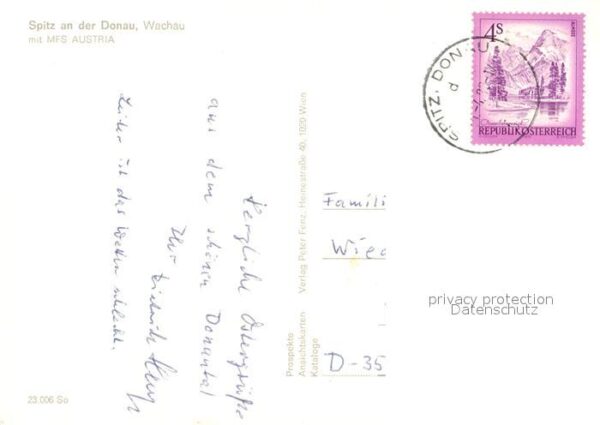 Spitz an der Donau, Wachau
mit MFS AUSTRIA
Herzliche Ostergrüße
aus dem schönen Donautal
Ihr Dietrich
Leider ist das Wetter schlecht.
23.006 So
Prospekte
Ansichtskarten
Kataloge
Verlag Peter Fenz, Heinestraße 40, 1020 Wien
Famili
Wied
D-35
4S
REPUBLIK ÖSTERREICH
SPITZ, DONAU
d
privacy protection
Datenschutz